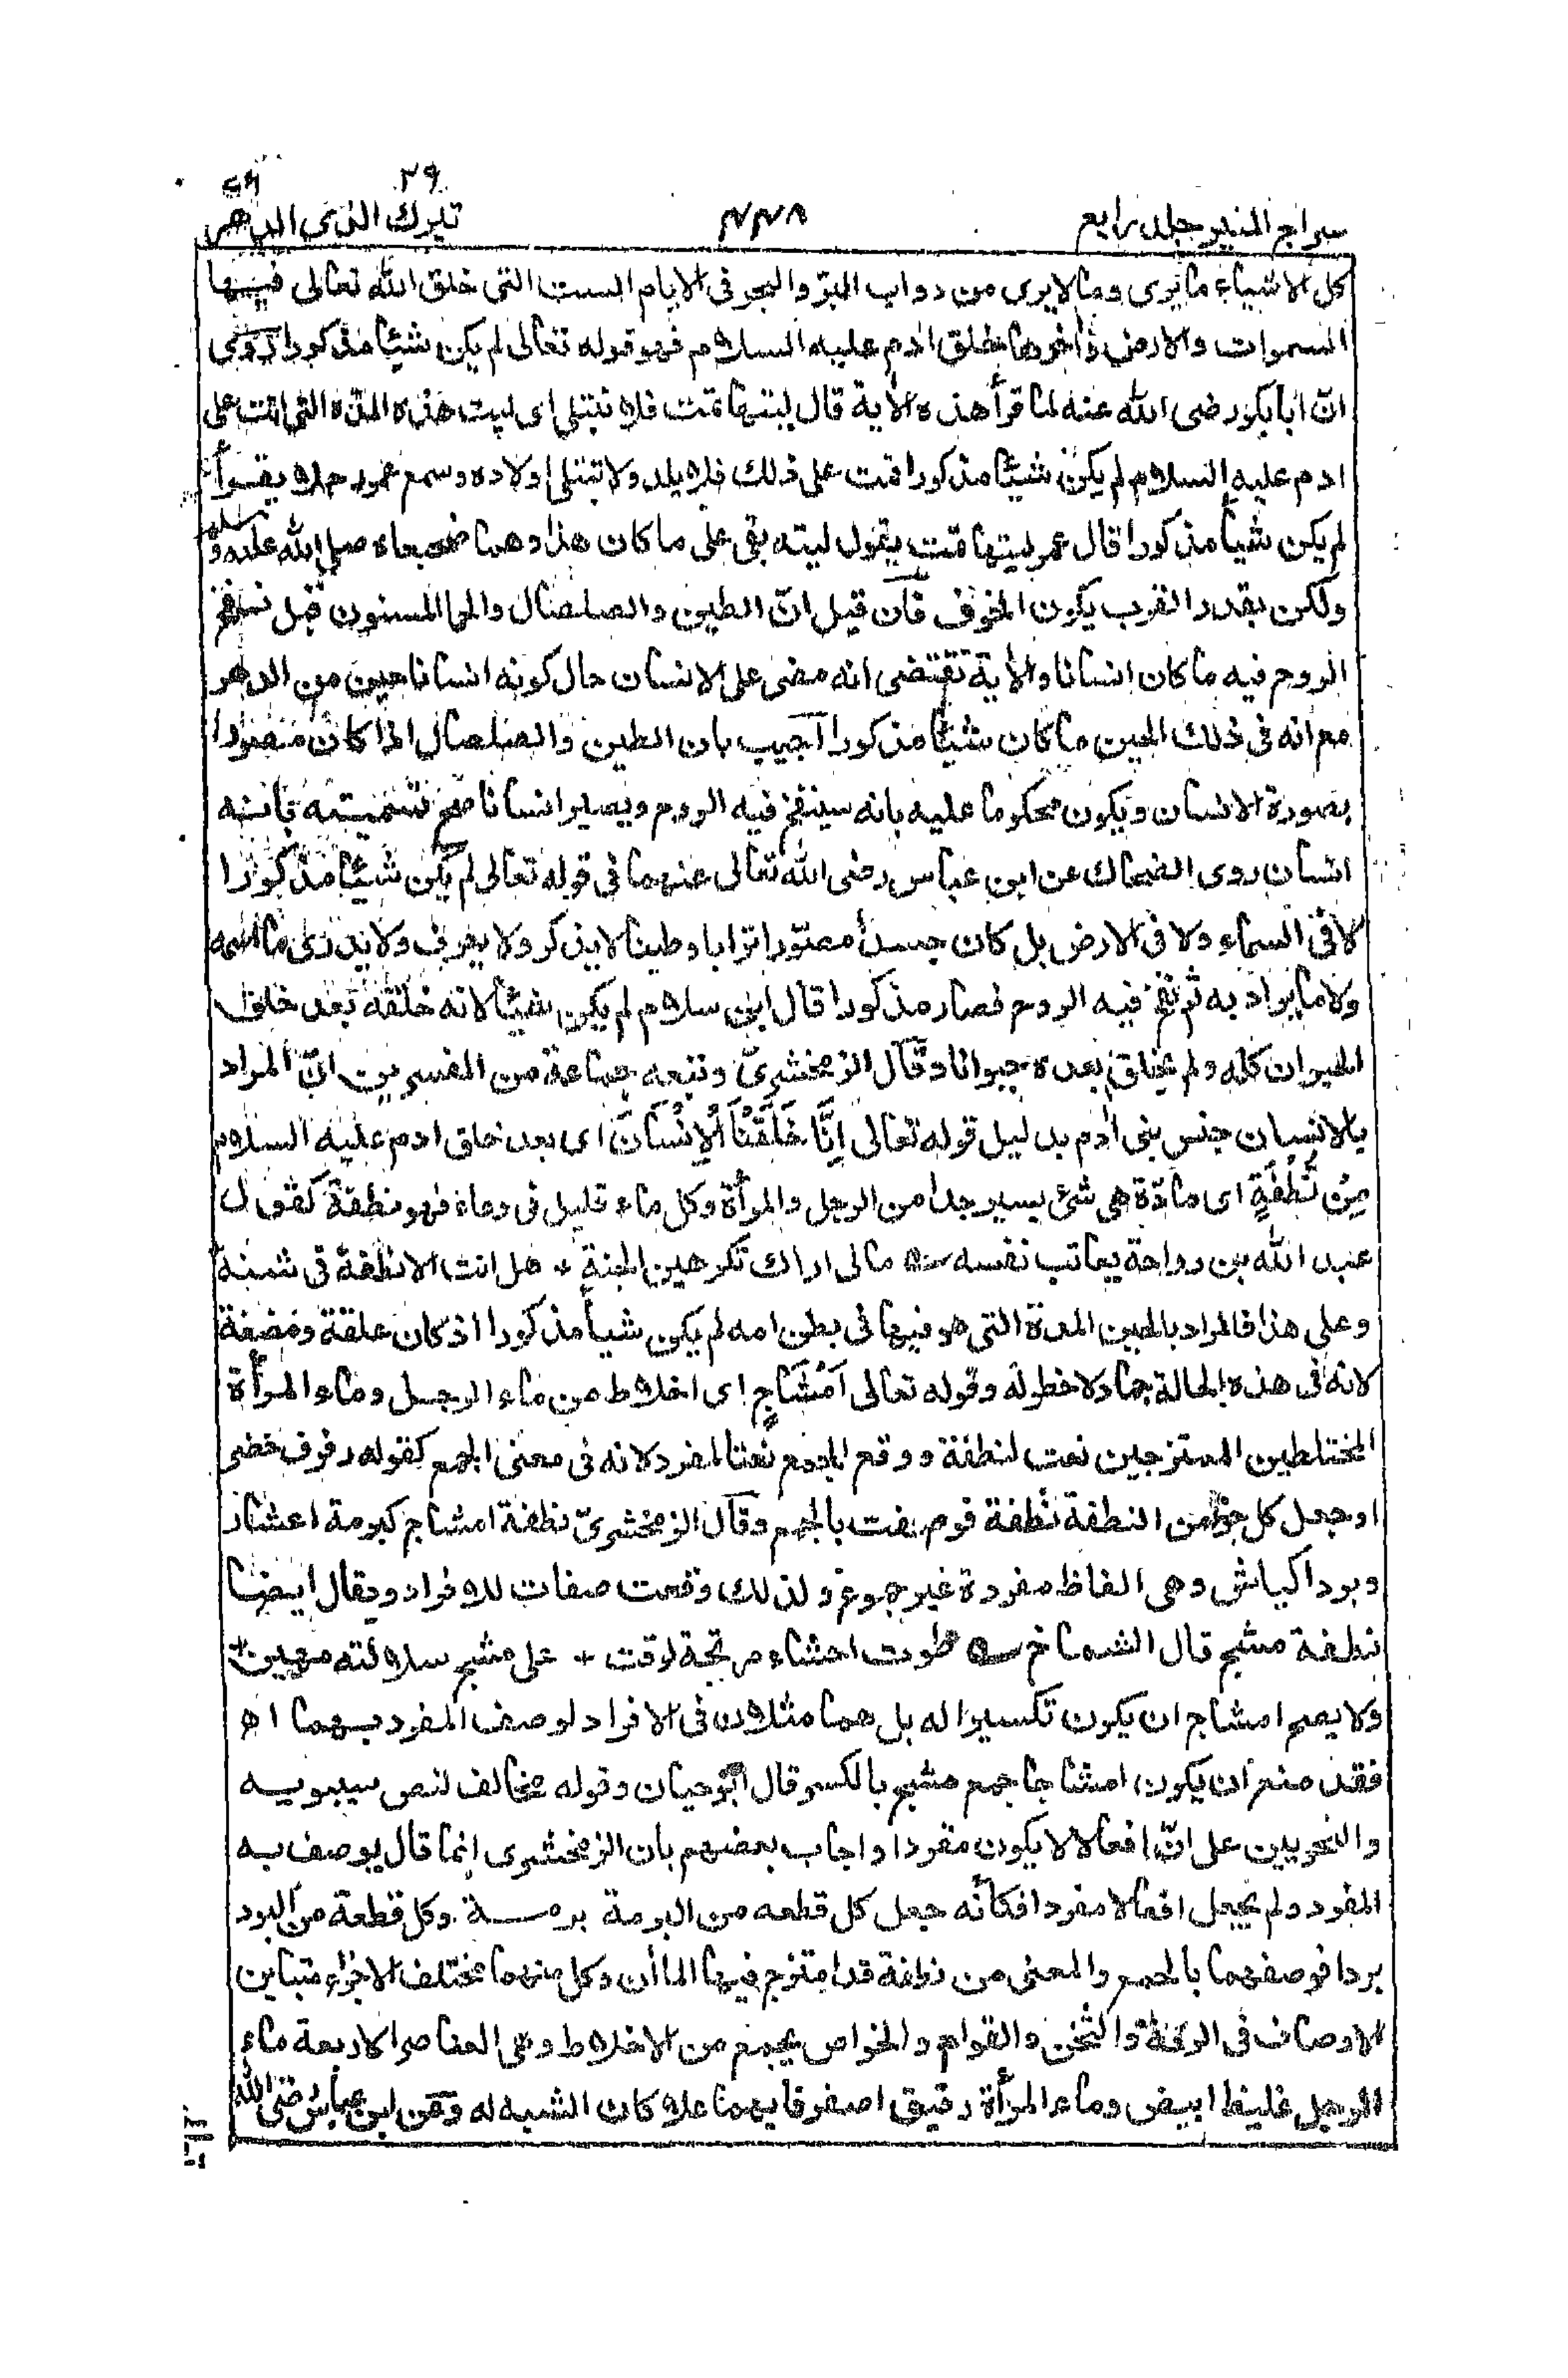 سراج المنير جلد رابع ٤٤٨ تبرك الذى ٢٩ الدهر ٧٦
كل الاشياء ما يرى وما لا يرى من دواب البرّ والبحر فى الايام الست التى خلق الله تعالى فيها
السموات والارض وآخرها خلق ادم عليه السلام فهو قوله تعالى لم يكن شيئا مذكورا روى
انّ ابا بكر رضى الله عنه لما قرأ هذه الاية قال ليتها تمت فلا نبتلى اى ليت هذه المدّة التى اتت على
ادم عليه السلام لم يكن شيئا مذكورا تمت على ذلك فلا يلد ولا تبتلى اولاده وسمع عمر رجلا يقرأ
لم يكن شيأ مذكورا قال عمر ليتها تمت يقول ليته بقى على ما كان هذا وهما ضجيعاه صلى الله عليه وسلم
ولكن بقدر القرب يكون الخوف فان قيل انّ الطين والصلصال والحما المسنون قبل نفخ
الروح فيه ما كان انسانا والاية تقتضى انه مضى على الانسان حال كونه انسانا حين من الدهر
مع انه فى ذلك الحين ما كان شيئا مذكورا اجيب بان الطين والصلصال اذا كان مصورا
بصورة الانسان ويكون محكوما عليه بانه سينفخ فيه الروح ويصير انسانا صح تسميته بانه
انسان روى الضحاك عن ابن عباس رضى الله تعالى عنهما فى قوله تعالى لم يكن شيئا مذكورا
لا فى السماء ولا فى الارض بل كان جسدا مصوّرا ترابا وطينا لا يذكر ولا يعرف ولا يدرى ما اسمه
ولا ما يراد به ثم نفخ فيه الروح فصار مذكورا قال ابن سلام لم يكن شيئا لانه خلقه بعد خلق
الحيوان كله ولم يخلق بعده حيوانا وقال الزمخشرىّ وتبعه جماعة من المفسرين انّ المراد
بالانسان جنس بنى ادم بدليل قوله تعالى اِنَّا خَلَقْنَا الْاِنْسَانَ اى بعد خلق ادم عليه السلام
مِنْ نُّطْفَةٍ اى مادّة هى شئ يسير جدا من الرجل والمرأة وكل ماء قليل فى وعاء فهو نطفة كقول
عبد الله بن رواحة يعاتب نفسه ؎ مالى اراك تكرهين الجنة + هل انت الا نطفة فى شنه
وعلى هذا فالمراد بالحين المدة التى هو فيها فى بطن امه لم يكن شيأ مذكورا اذ كان علقة ومضغة
لانه فى هذه الحالة جماد لا خطر له وقوله تعالى اَمْشَاجٍ اى اخلاط من ماء الرجل وماء المرأة
المختلطين الممتزجين نعت لنطفة ووقع الجمع نعتا لمفرد لانه فى معنى الجمع كقوله رفرف خضر
او جعل كل جزء من النطفة نطفة فوصفت بالجمع وقال الزمخشرىّ نطفة امشاج كبرمة اعشار
وبرد اكياش وهى الفاظ مفردة غير جموع ولذلك وقعت صفات للافراد ويقال ايضا
نطفة مشج قال الشماخ ؎ طوت احشاء مرتجة لوقت + على مشج سلالته مهين
ولا يصح امشاج ان يكون تكسيرا له بل هما مثلان فى الافراد لوصف المفرد بهما اه
فقد منع ان يكون امشاجا جمع مشج بالكسر قال ابو حيان وقوله مخالف لنص سيبويه
والنحويين على انّ افعالا لا يكون مفردا واجاب بعضهم بان الزمخشرى انما قال يوصف به
المفرد ولم يجعل افعالا مفردا فكأنه جعل كل قطعه من البرمة برمة وكل قطعة من البرد
بردا فوصفهما بالجمع والمعنى من نطفة قد امتزج فيها الماأن وكل منهما مختلف الاجزاء متباين
الاوصاف فى الرقة والثخن والقوام والخواص يجمع من الاخلاط وهى العناصر الاربعة ماء
الرجل غليظ ابيض وماء المرأة رقيق اصفر فايهما علا كان الشبه له وعن ابن عباس رضى الله